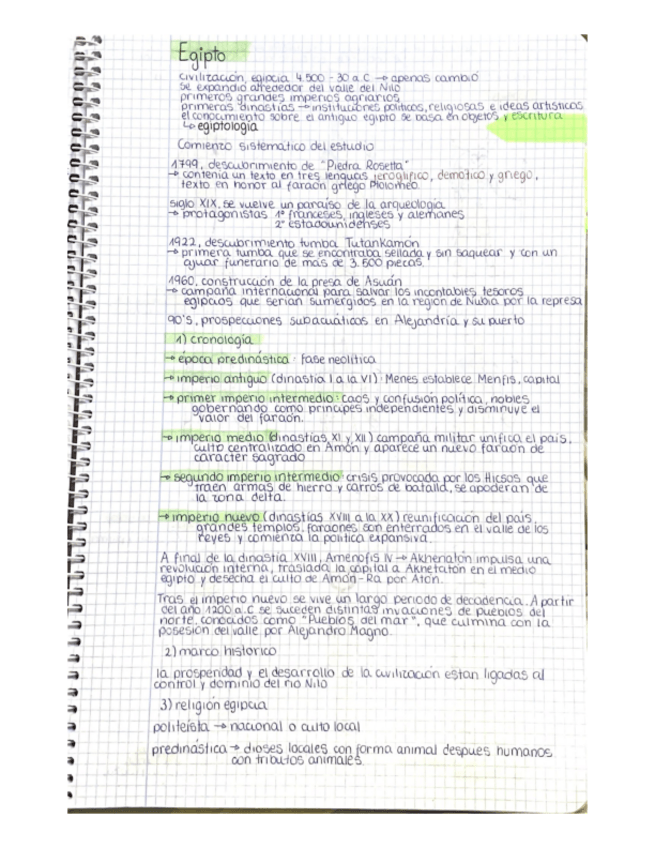 Egipto
civilización egipcia 4.500 - 30 a.C → apenas cambió
se expandió alrededor del valle del Nilo
primeros grandes imperios agrarios
primeras dinastías → instituciones políticas, religiosas e ideas artísticas
el conocimiento sobre el antiguo egipto se basa en objetos y escritura
↳ egiptología
Comienzo sistemático del estudio
1799, descubrimiento de "Piedra Rosetta"
→ contenía un texto en tres lenguas jeroglífico, demótico y griego,
texto en honor al faraón griego Ptolomeo.
siglo XIX, se vuelve un paraíso de la arqueología
→ protagonistas 1º franceses, ingleses y alemanes
2º estadounidenses
1922, descubrimiento tumba Tutankamón
→ primera tumba que se encontraba sellada y sin saquear y con un
ajuar funerario de más de 3.500 piezas.
1960, construcción de la presa de Asuán
→ campaña internacional para salvar los incontables tesoros
egipcios que serían sumergidos en la región de Nubia por la represa
90's, prospecciones subacuáticas en Alejandría y su puerto
1) cronología
→ época predinástica: fase neolítica
→ imperio antiguo (dinastía I a la VI): Menes establece Menfis, capital
→ primer imperio intermedio: caos y confusión política, nobles
gobernando como príncipes independientes y disminuye el
valor del faraón.
→ imperio medio (dinastías XI y XII) campaña militar unifica el país.
culto centralizado en Amón y aparece un nuevo faraón de
carácter sagrado
→ segundo imperio intermedio: crisis provocada por los Hicsos que
traen armas de hierro y carros de batalla, se apoderan de
la zona delta.
→ imperio nuevo (dinastías XVIII a la XX) reunificación del país
grandes templos, faraones son enterrados en el valle de los
reyes y comienza la política expansiva.
A final de la dinastía XVIII, Amenofis IV → Akhenatón impulsa una
revolución interna, traslada la capital a Aknetatón en el medio
egipto y desecha el culto de Amón-Ra por Atón.
Tras el imperio nuevo se vive un largo periodo de decadencia. A partir
del año 1200 a.C se suceden distintas invaciones de pueblos del
norte, conocados como "Pueblos del mar", que culmina con la
posesión del valle por Alejandro Magno.
2) marco histórico
la prosperidad y el desarrollo de la civilización estan ligadas al
control y dominio del río Nilo
3) religión egipcia
politeísta → nacional o culto local
predinástica → dioses locales con forma animal despues humanos
con tributos animales.